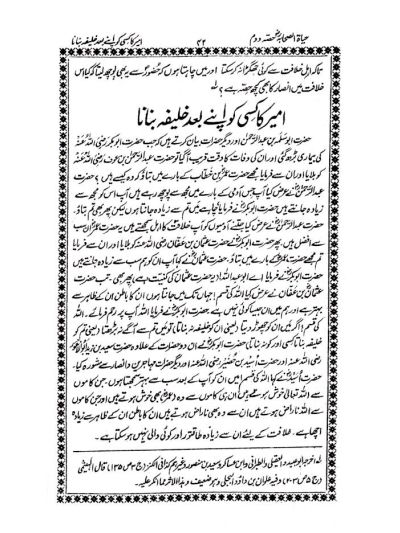 حیاۃ الصحابہؓ حصہ دوم ۴۲ امیر کا کسی کو اپنے بعد خلیفہ بنانا
تاکہ اہل خلافت سے کوئی جھگڑا نہ کر سکتا اور میں چاہتا ہوں کہ حضورؐ سے یہ بھی پوچھ لیتا کہ کیا اس
خلافت میں انصار کا بھی کچھ حصہ ہے؟ لہ
امیر کا کسی کو اپنے بعد خلیفہ بنانا
حضرت ابو سلمہ بن عبد الرحمٰن اور دیگر حضرات بیان کرتے ہیں کہ جب حضرت ابوبکر رضی اللہ عنہ
کی بیماری بڑھ گئی اور ان کی وفات کا وقت قریب آ گیا تو حضرت عبد الرحمٰن بن عوف رضی اللہ عنہ
کو بلایا اور ان سے فرمایا مجھے حضرت عمرؓ بن خطاب کے بارے میں بتاؤ کہ وہ کیسے ہیں؟ حضرت
عبد الرحمٰنؓ نے عرض کیا آپ جس آدمی کے بارے میں مجھ سے پوچھ رہے ہیں آپ اس کو مجھ سے
زیادہ جانتے ہیں حضرت ابوبکرؓ نے فرمایا چاہے میں تم سے زیادہ جانتا ہوں لیکن پھر بھی تم بتاؤ۔
حضرت عبد الرحمٰنؓ نے عرض کیا جتنے آدمیوں کو آپ خلافت کا اہل سمجھتے ہیں یہ حضرت عمرؓ ان سب
سے افضل ہیں۔ پھر حضرت ابوبکرؓ نے حضرت عثمان بن عفان رضی اللہ عنہ کو بلایا اور ان سے فرمایا
تم مجھے حضرت عمرؓ کے بارے میں بتاؤ۔ حضرت عثمانؓ نے کہا آپ ان کو ہم سب سے زیادہ جانتے ہیں
حضرت ابوبکرؓ نے فرمایا اے ابو عبد اللہ! (یہ حضرت عثمانؓ کی کنیت ہے) پھر بھی۔ تب حضرت
عثمانؓ بن عفان نے عرض کیا اللہ کی قسم! جہاں تک میں جانتا ہوں ان کا باطن ان کے ظاہر سے
بہتر ہے اور ہم میں ان جیسا کوئی نہیں ہے۔ حضرت ابوبکرؓ نے فرمایا اللہ آپ پر رحم فرمائے۔ اللہ
کی قسم! اگر میں ان کو چھوڑ دیتا (یعنی ان کو خلیفہ نہ بناتا) تو میں تم سے آگے نہ بڑھتا (یعنی تم کو
خلیفہ بناتا کسی اور کو نہ بناتا) حضرت ابوبکرؓ نے ان دو حضرات کے علاوہ حضرت سعید بن زید ابو الاعور
رضی اللہ عنہ اور حضرت اُسید بن حُضَیر رضی اللہ عنہ اور دیگر حضرات مہاجرین و انصار سے مشورہ کیا۔
حضرت اُسیدؓ نے کہا اللہ کی قسم! میں ان کو آپ کے بعد سب سے بہتر سمجھتا ہوں۔ جن کاموں
سے اللہ تعالیٰ خوش ہوتے ہیں ان ہی کاموں سے وہ (عمرؓ) بھی خوش ہوتے ہیں اور جن کاموں
سے اللہ ناراض ہوتے ہیں ان سے وہ بھی ناراض ہوتے ہیں ان کا باطن ان کے ظاہر سے زیادہ
اچھا ہے۔ خلافت کے لیے ان سے زیادہ طاقتور اور کوئی والی نہیں ہو سکتا ہے۔
لہ اخرجہ ابو عبید والعقیلی والطبرانی وابن عساکر وسعید بن منصور وغیرہم کذا فی الکنز (ج ۳ ص ۱۳۵) قال الہیثمی
(ج ۵ ص ۲۰۳) وفیہ علوان بن داؤد البجلی وہو ضعیف وہذا الاثر مما انکر علیہ۔